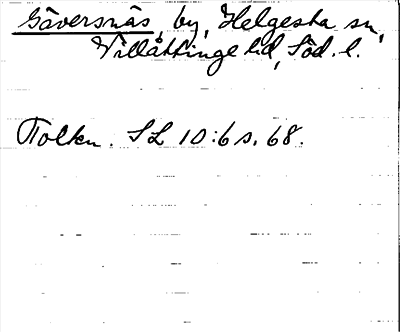 Gäversnäs, by, Helgesta sn,
Villåttinge hd, Söd. l.
Tolkn. SL 10:6 s. 68.